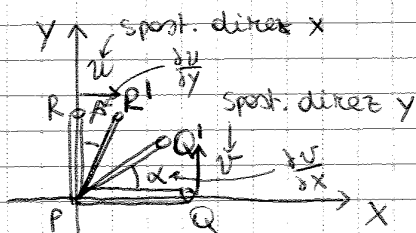 Y spost. direz x
u ∂u/∂y
R R' spost. direz y
Q' v
α ∂v/∂x
P Q X